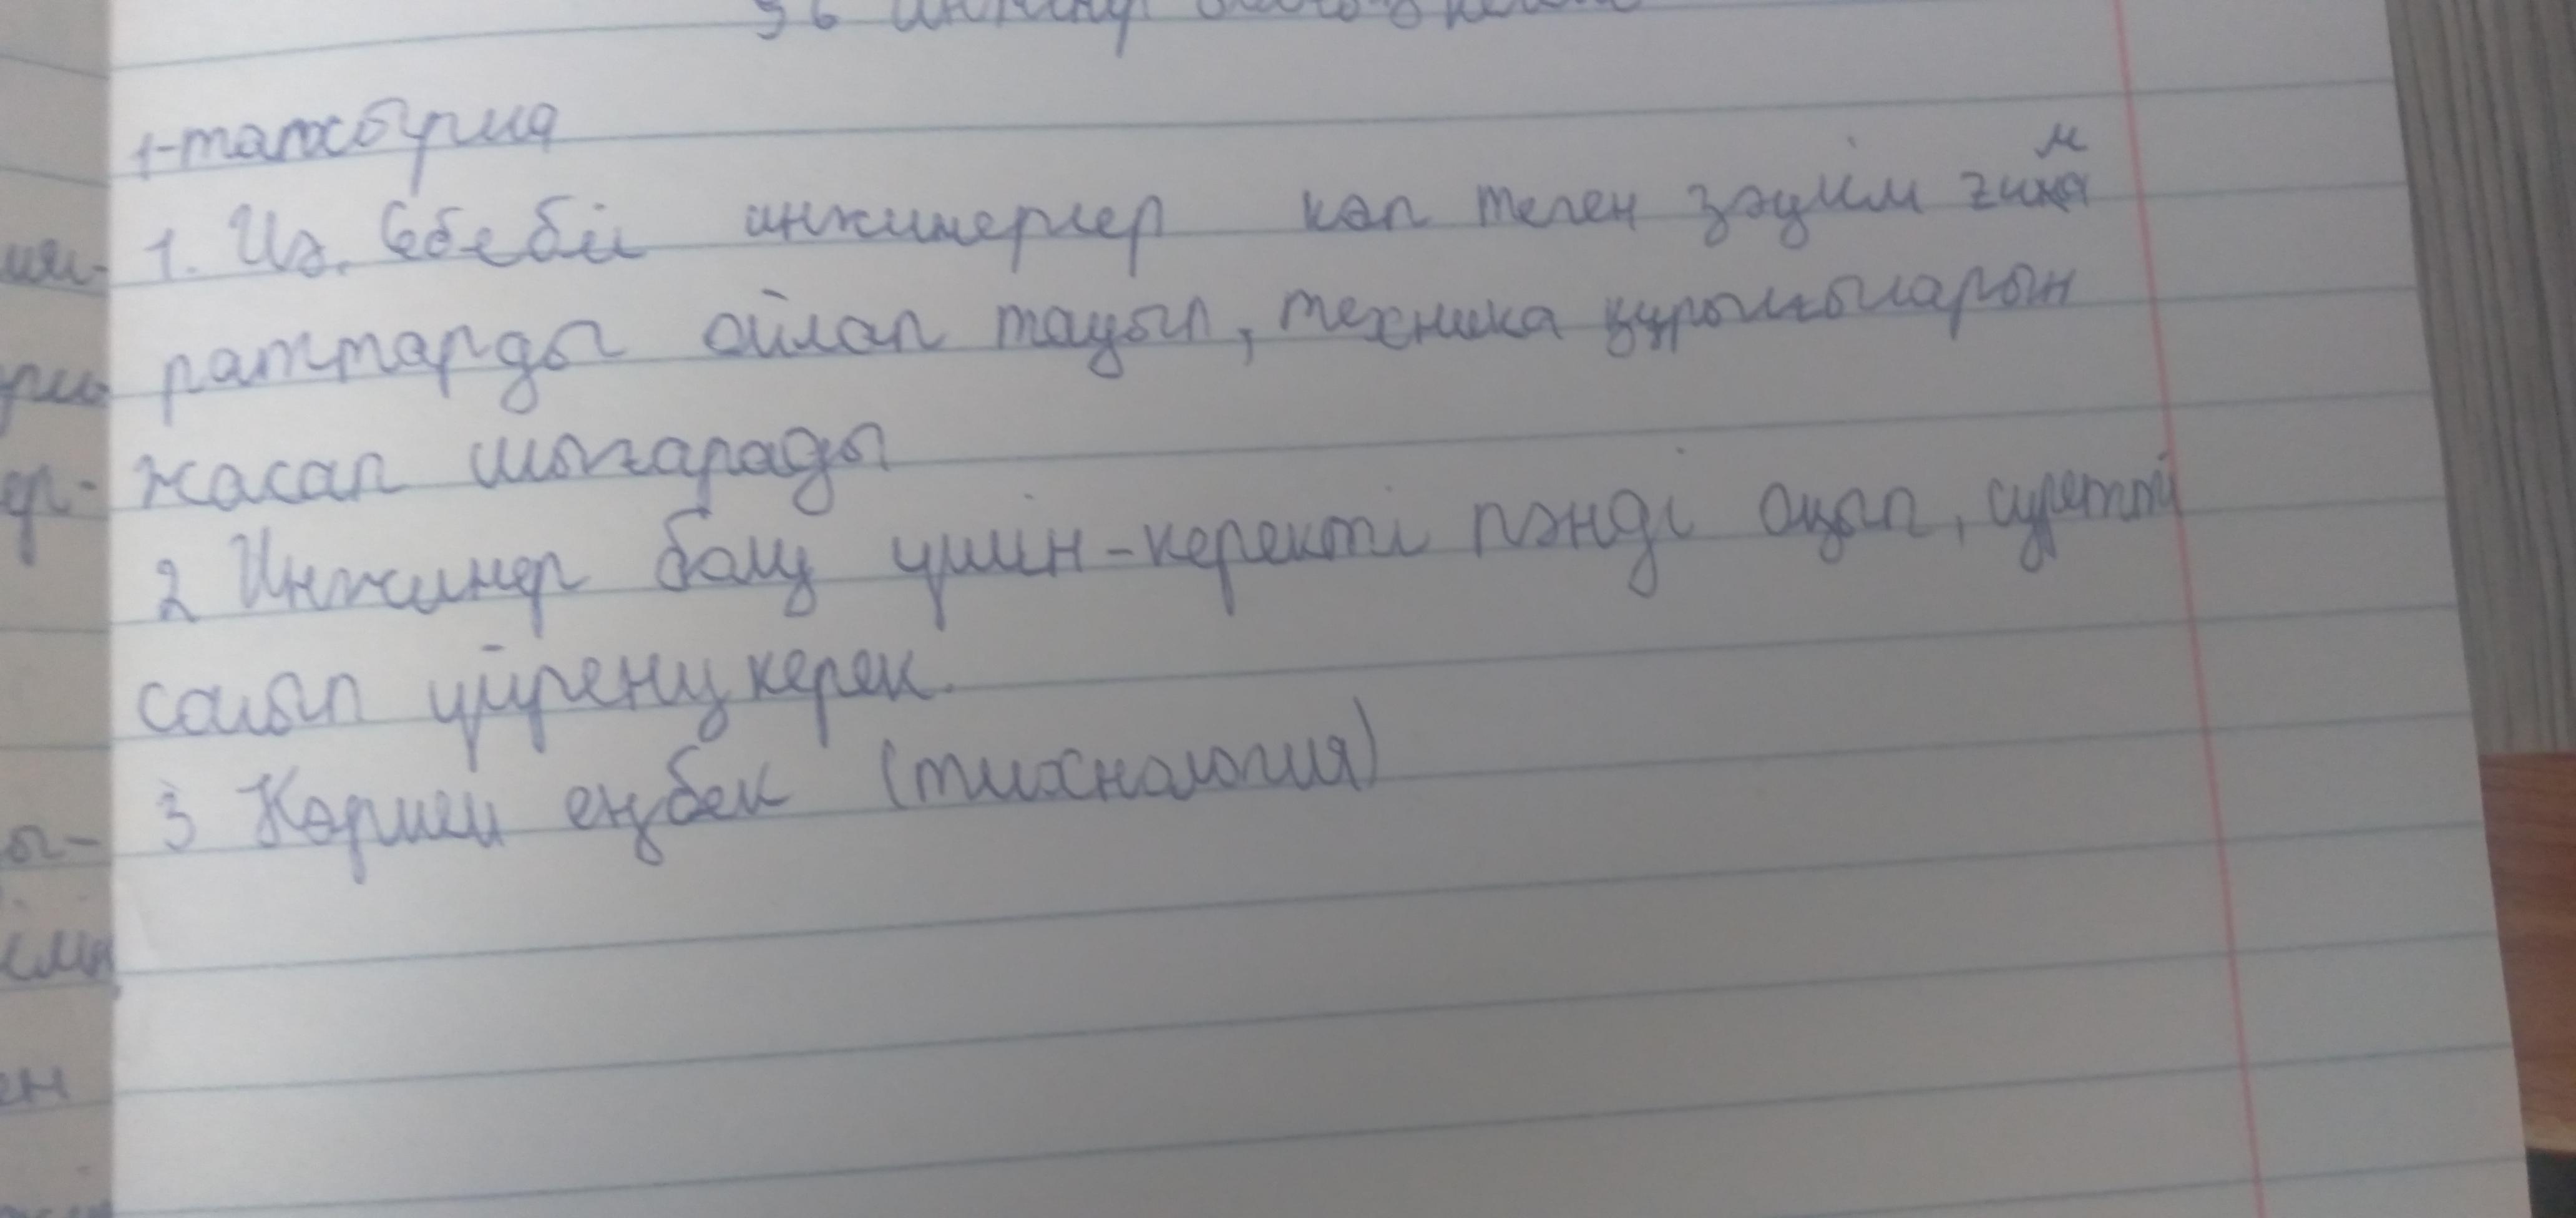 1-тапсырма
1. Иә. Себебі инжинерлер көп теген зәулім ғима
раттарды ойлап тауып, техника құрылғыларын
жасап шығарады
2 Инжинер болу үшін-керекті пәнді оқып, суретті
салып үйрену керек.
3 Көркем еңбек (тихнология)